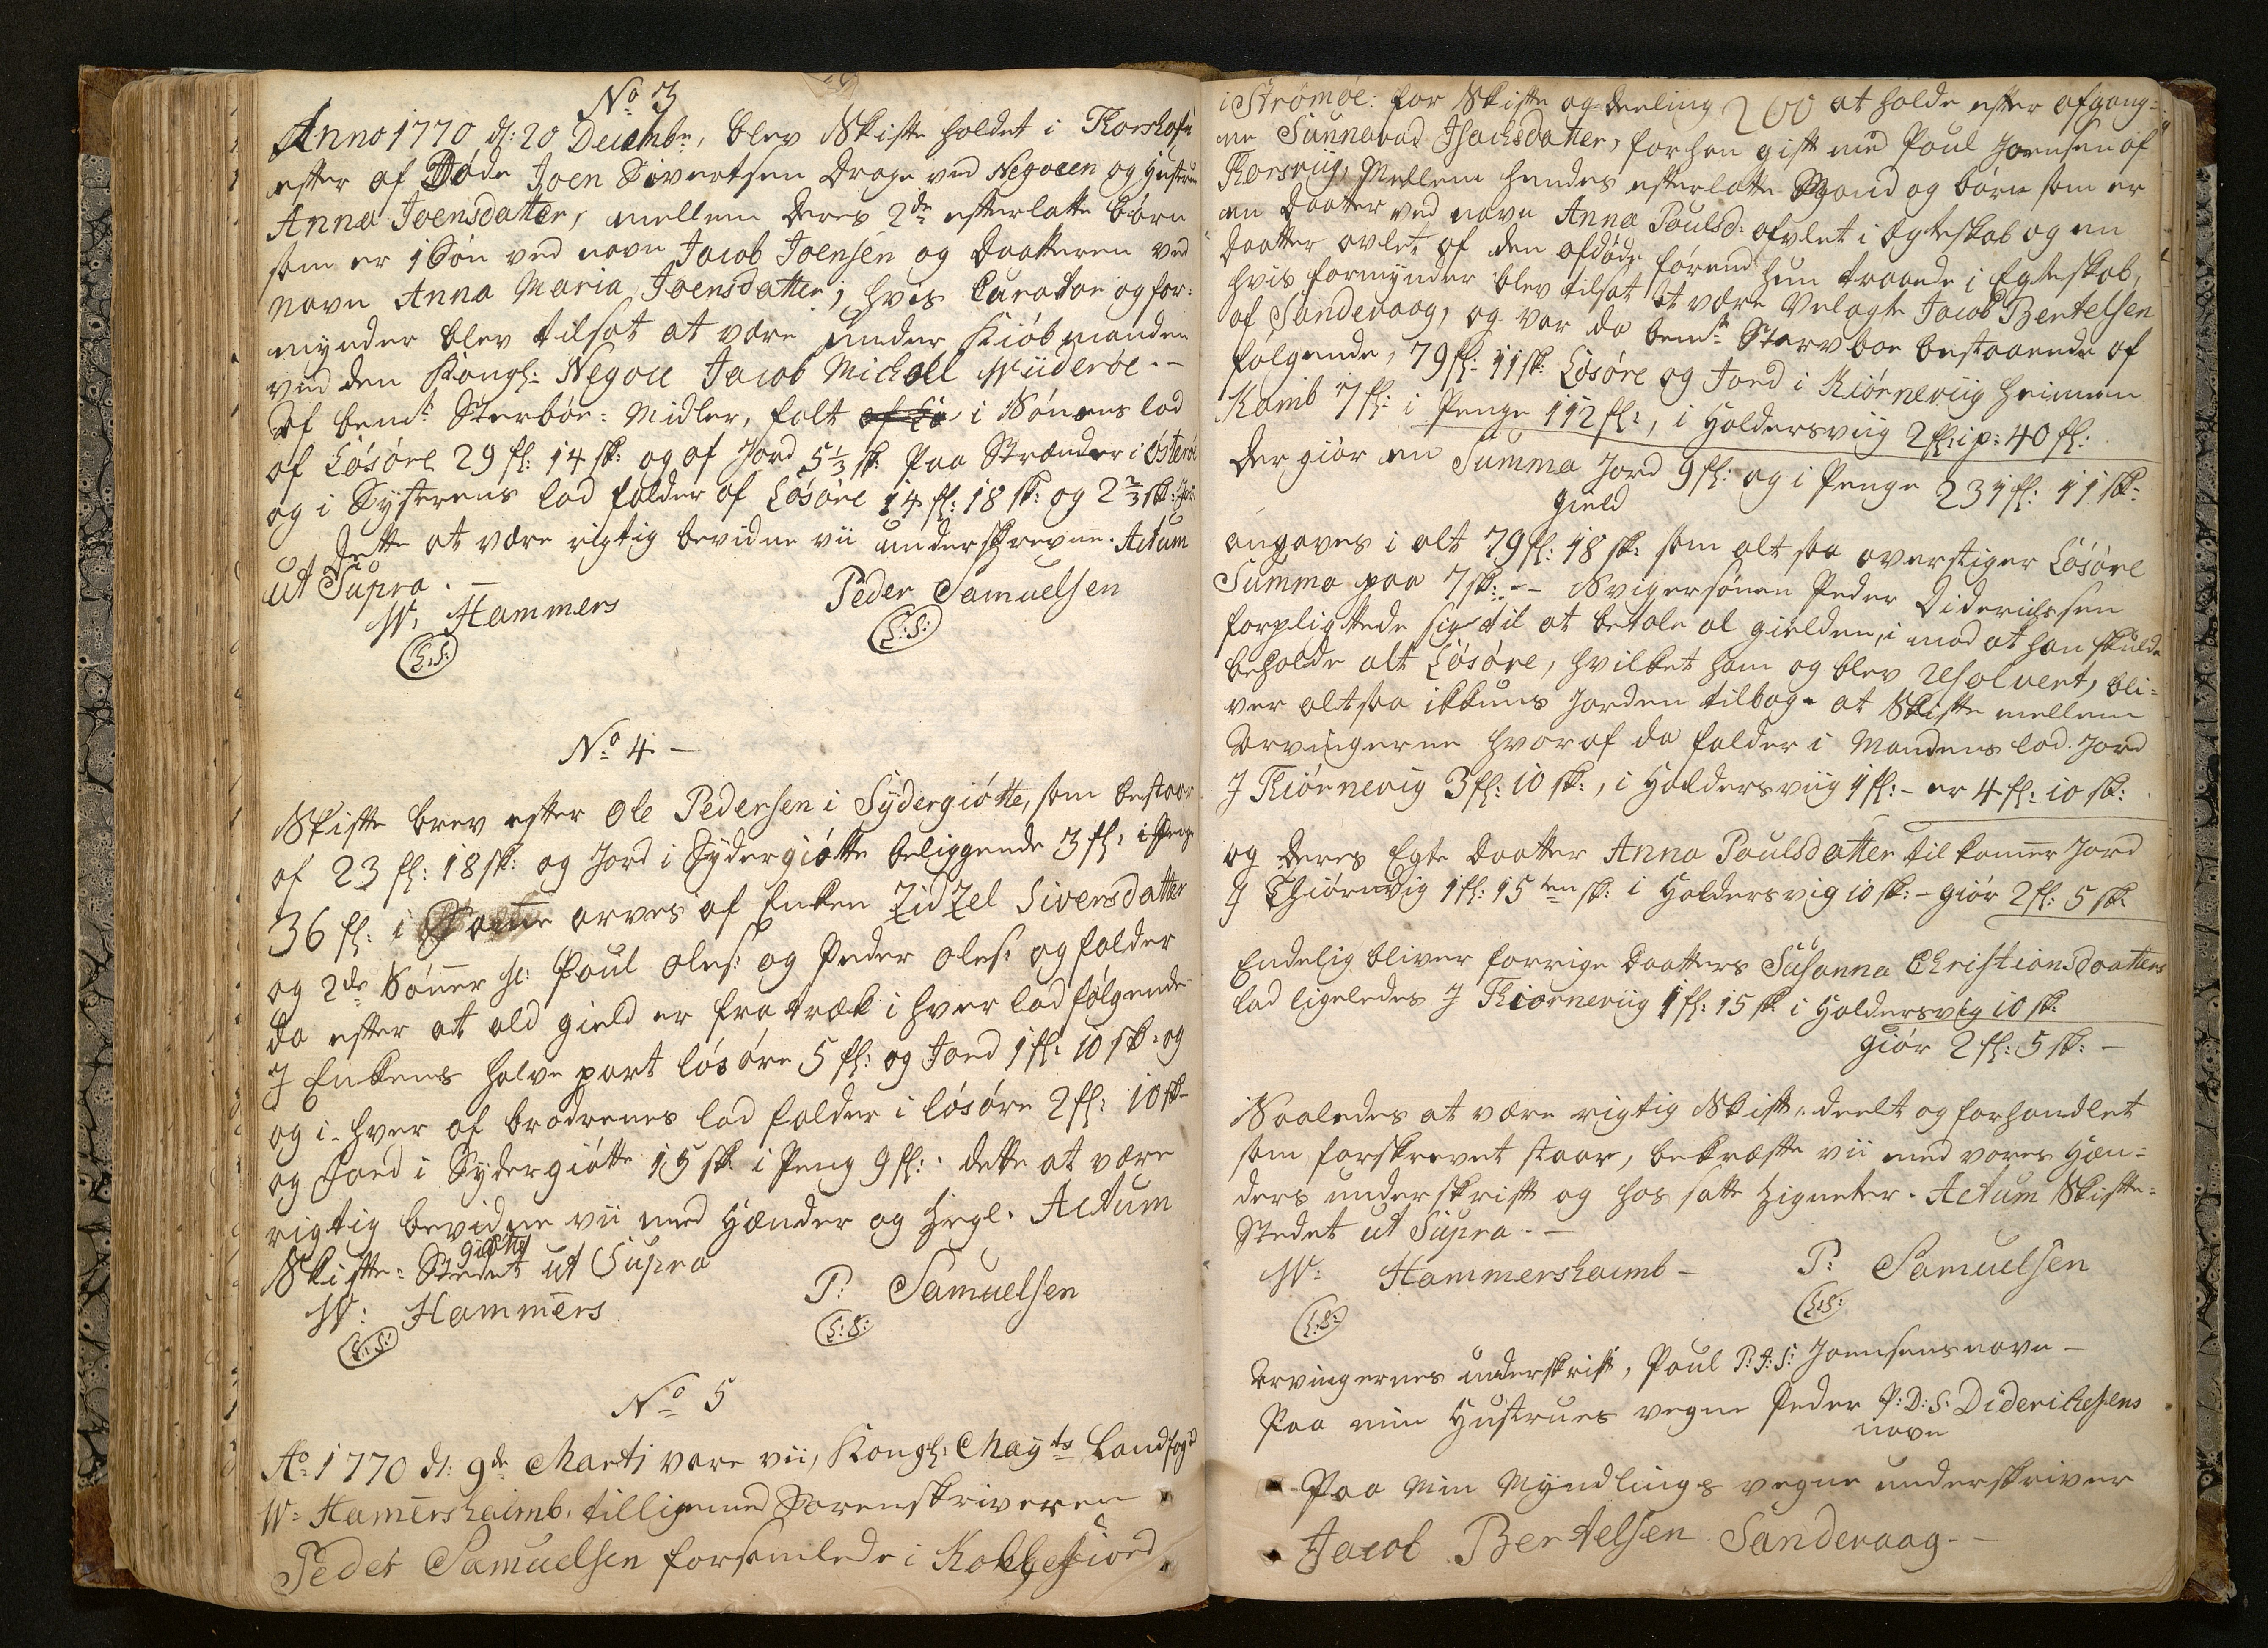 No 3
Anno 1770 d: 20 Decembr, blev Skifte holdet i Thorshafn
efter af Døde Joen Sivertsen Drage ved Negocen og Hustrue
Anna Joensdatter, mellem deres 2de efterlatte børn
som er 1 Søn ved navn Jacob Joensen og Daatteren ved
navn Anna Maria Joensdatter, hvis Curator og for-
mynder blev tilsat at være under Kiøbmanden
ved den Kongl: Negoce Jacob Michell Wiideröe. -
Af bemt Sterbøe: Midler, falt i Sønens lod
af Løsøre 29 fl: 14 sk: og af Jord 5 1/3 sk: paa Strænder i Østerøe
og i Systerens lod falder af Løsøre 14 fl: 18 sk: og 2 2/3 sk:
Dette at være rigtig bevidne vii underskrevne. Actum
ut Supra. -
W: Hammers Peder Samuelsen
(L:S:) (L:S:)
No 4 -
Skifte brev efter Ole Pedersen i Sydergiøtte, som bestaar
af 23 fl: 18 sk: og Jord i Sydergiøtte beliggende 3 fl: i Penge
36 fl: i arves af Enken Zidzel Siversdatter
og 2de Sønner sl: Poul Oles: og Peder Oles: og falder
da efter at ald gield er fratræk i hver lod følgende
J Enkens halve part løsøre 5 fl: og Jord 1 fl: 10 sk: og
og i hver af brødrenes lod falder i løsøre 2 fl: 10 sk
og Jord i Sydergiøtte 15 sk: i Peng 9 fl: dette at være
rigtig bevidne vii med Hænder og Segl. Actum
giøtte
Skifte: Stedet ut Supra
W: Hammers P: Samuelsen
(L:S:) (L:S:)
No 5
Ao 1770 d: 9de Marti vare vii, Kongl: Mayts Landfogd
W: Hamershaimb, tilligemed Sorenskriveren
Peder Samuelsen forsamlede i Kollefiord
i Strømøe: for Skifte og deeling at holde efter afgang-
ne Sunnevad Isachsdatter, forhen gift med Poul Joensen af
Thorsvig, Mellem hendes efterlatte Mand og børn som er
en Daatter ved navn Anna Poulsd: aflet i Egteskab og en
Daatter avlet af den afdøde førend hun traade i Egteskab,
hvis formynder blev tilsat at være Velagte Jacob Bertelsen
af Sandevaag, og var da bemt Stervboe bestaaende af
følgende, 79 fl: 11 sk: Løsøre og Jord i Kiørneviig heimen
Kamb 7 fl: i Penge 112 fl:, i Haldersviig 2 fl: i p: 40 fl:
Der giør en Summa Jord 9 fl: og i Penge 231 fl: 11 sk:
gield
angaves i alt 79 fl: 18 sk: som alt saa overstiger Løsøre
Summa paa 7 sk: -- Svigersønen Peder Diderichssen
forpligttede sig til at betale al gielden, i mod at han skulde
beholde alt Løsøre, hvilket ham og blev resolvert, bli-
ver altsaa ikkuns Jorden tilbage at Skifte mellem
Arvingerne hvoraf da falder i Mandens lod Jord
J Kiørnevig 3 fl: 10 sk:, i Haldersviig 1 fl: - er 4 fl: 10 sk:
og deres Egte Daatter Anna Poulsdatter tilkomer Jord
J Thiørnvig 1 fl: 15 sk: i Haldersvig 10 sk: - giør 2 fl: 5 sk:
Endelig bliver forrige Daatters Susanna Christiansdaatters
lod ligeledes J Kiorneviig 1 fl: 15 sk i Haldersvig 10 sk:
giør 2 fl: 5 sk: -
Saaledes at være rigtig Skift, deelt og forhandlet
som forskrevet staar, bekræfte vii med vores Hæn-
ders underskrift og hos satte Zigneter. Actum Skifte-
Stedet ut Supra. -
W: Hammershaimb - P: Samuelsen
(L:S:) (L:S:)
Arvingernes underskrift, Poul P:J:S: Joensens navn -
Paa min Hustrues vegne Peder P:D:S: Diderichsens
navn
Paa Min Myndlings vegne underskriver
Jacob Bertelsen Sandevaag. -